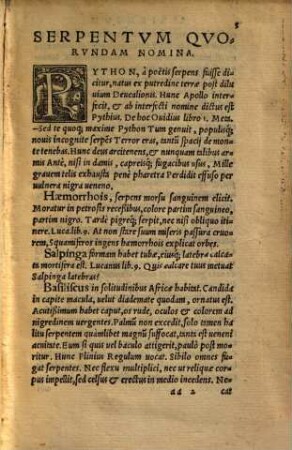 5
SERPENTVM QVO-
RVNDAM NOMINA.
PYTHON, à poëtis serpens fuisse di-
citur, natus ex putredine terræ post dilu-
uium Deucalionis. Hunc Apollo inter-
fecit, & ab interfecti nomine dictus est
Pythius. De hoc Ouidius libro 1. Meta.
Sed te quoq; maxime Python Tum genuit, populisq;
nouis incognite serpēs Terror eras, tantū spacij de mon-
te tenebas. Hunc deus arcitenens, et nunquam talibus ar-
mis Antè, nisi in damis, capreisq; fugacibus vsus, Mille
grauem telis exhausta penè pharetra Perdidit effuso per
vulnera nigra ueneno.
Hæmorrhois, serpens morsu sanguinem elicit.
Moratur in petrosis recessibus, colore partim sanguineo,
partim nigro. Tardè pigreq; serpit, nec nisi obliquo iti-
nere. Luca.lib. 9. At non stare suum miseris passura cruo-
rem, Squamiferos ingens hæmorrhois explicat orbes.
Salpinga formam habet tubæ, eiusq; latebræ calcan-
ti mortifera est. Lucanus lib. 9. Quis calcare tuas metuat
Salpinga latebras?
Basiliscus in solitudinibus Africæ habitat. Candida
in capite macula, uelut diademate quodam, ornatus est.
Acutissimum habet caput, os rude, oculos & colorem ad
nigredinem uergentes. Palmū non excedit, solo tamen ha-
litu serpentem quamlibet magnū suffocat, tantū est uenenū
Eum si quis uel baculo attigerit, paulò post mo-
ritur. Hunc Plinius Regulum uocat. Sibilo omnes fu-
gat serpentes. Nec flexu multiplici, nec ut reliquæ cor-
pus impellit, sed celsus & erectus in medio incedens. Ne-
aa 2 cat